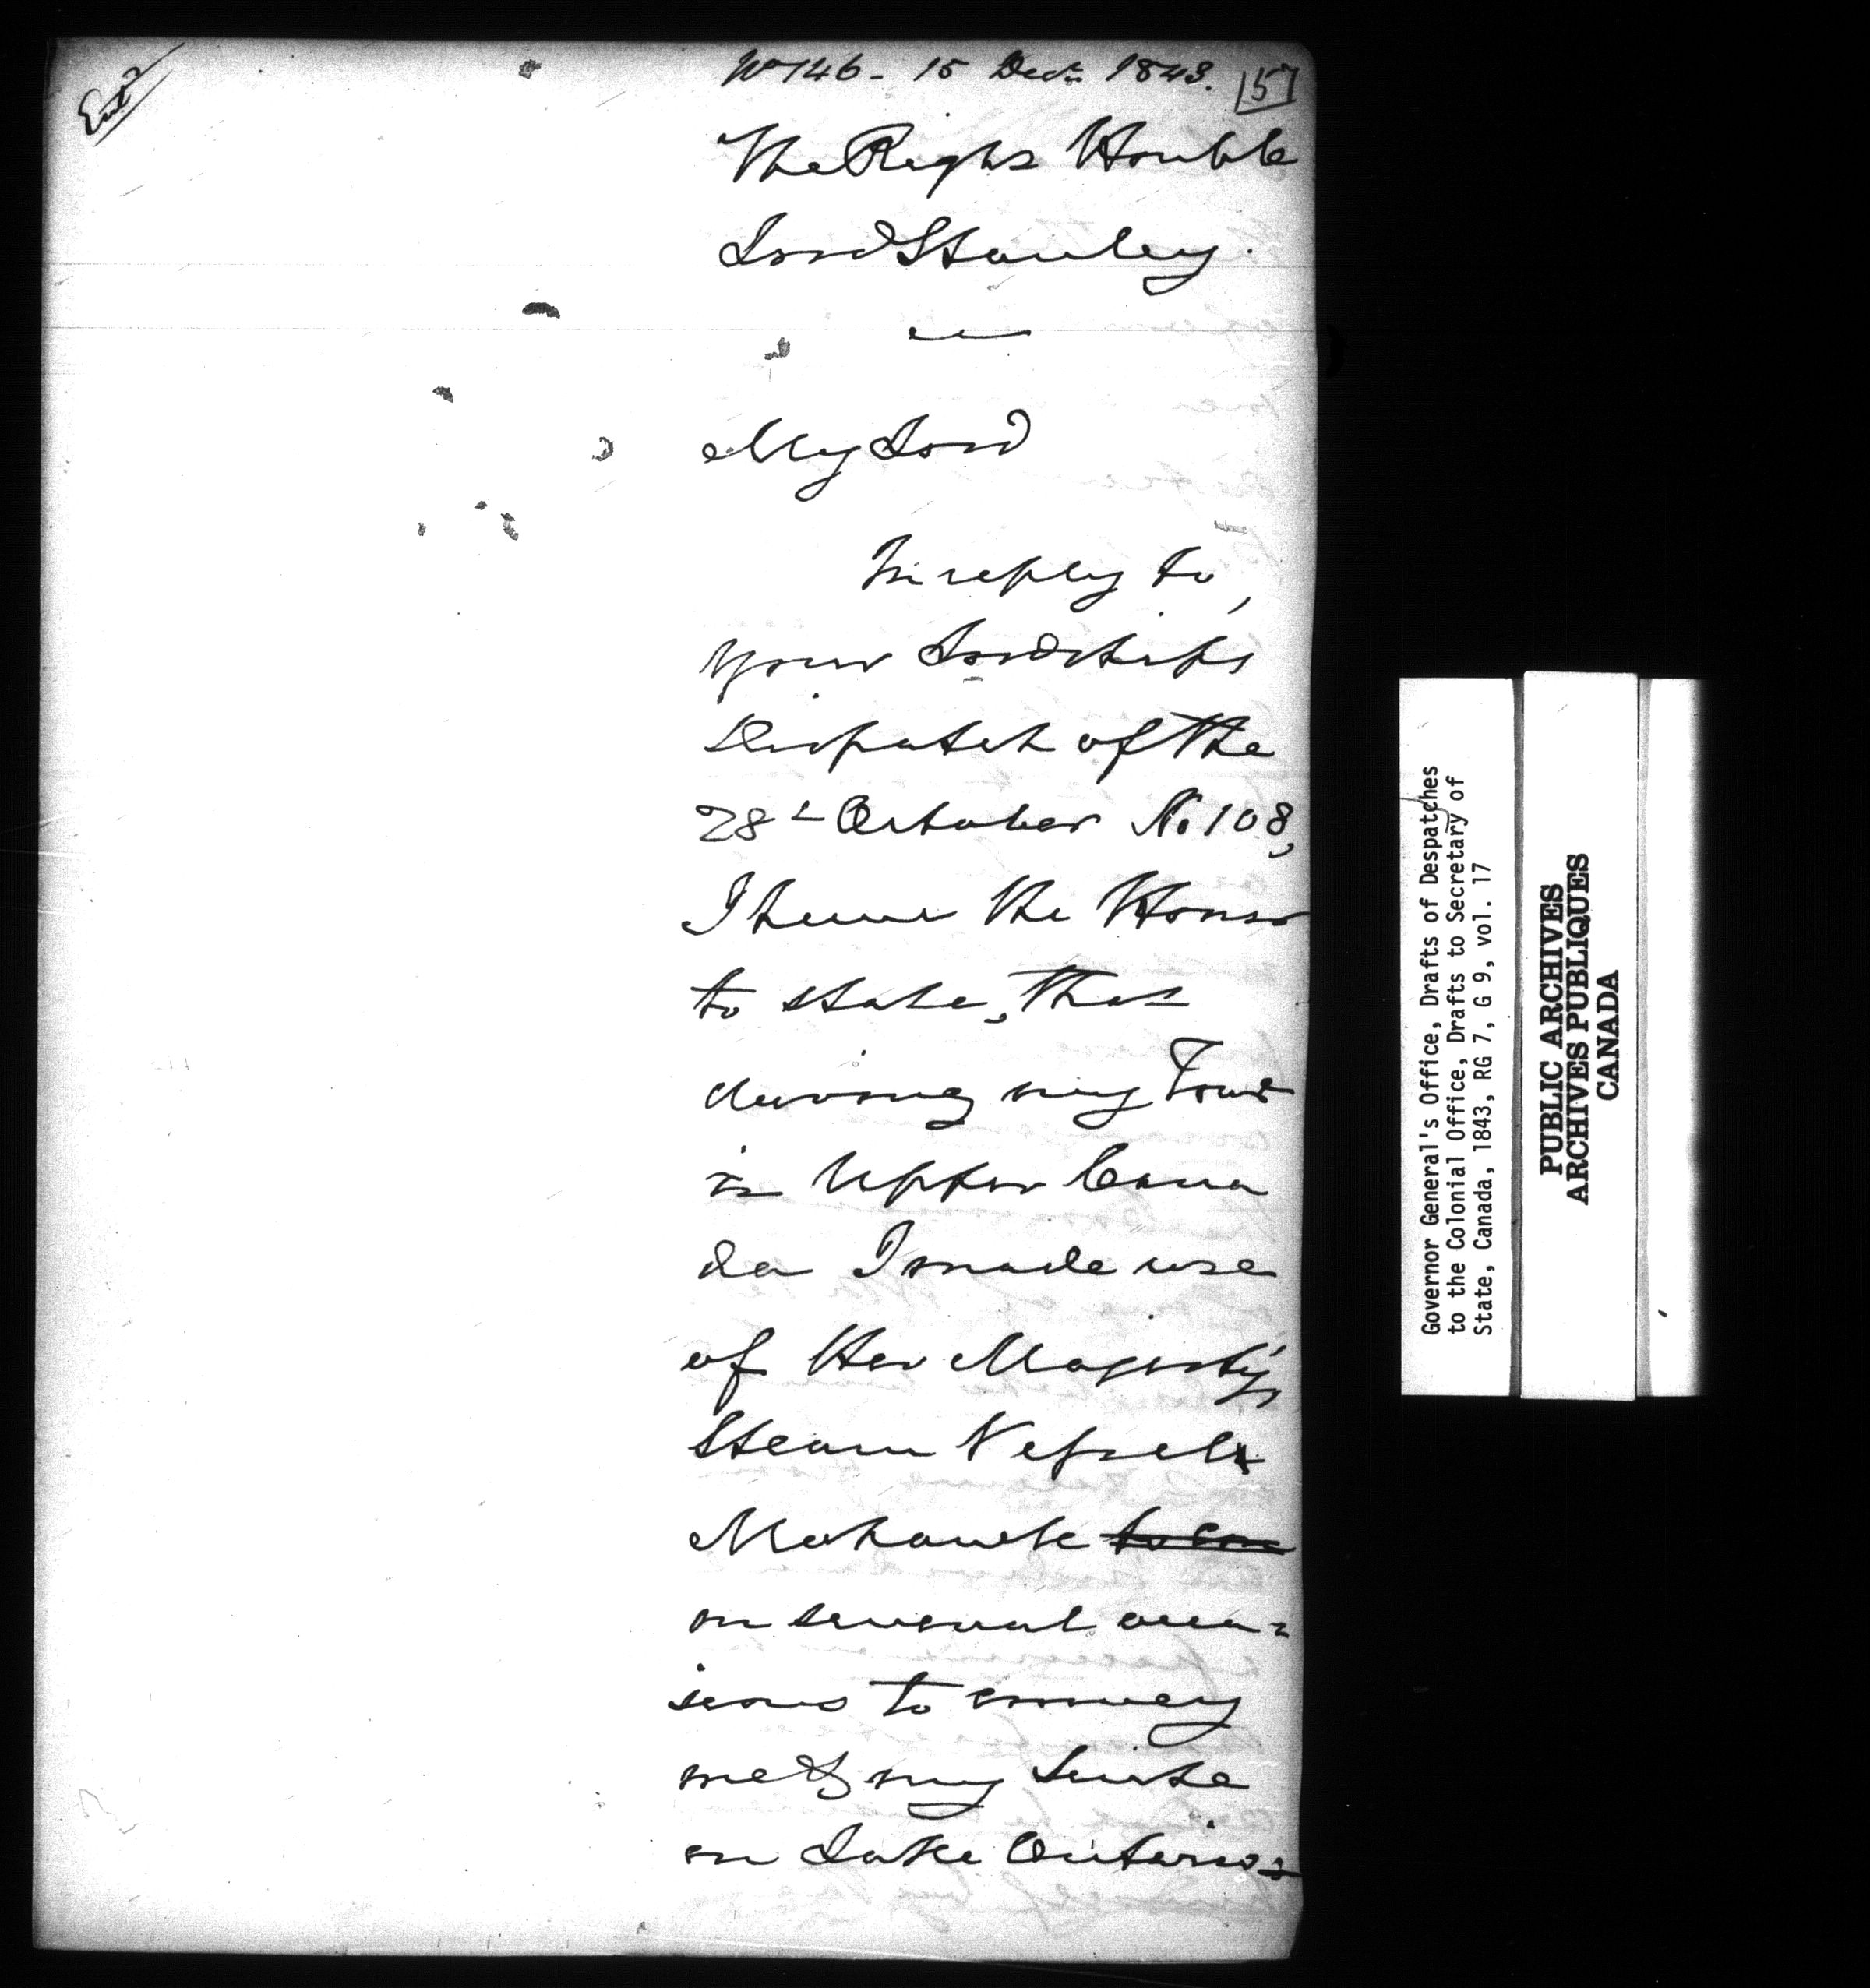 Entd
No 146 - 15 Decr 1843.
157
The Right Honble
Lord Stanley.
My Lord
In reply to,
your Lordships
Dispatch of the
28th October No 108,
I have the Honor
to state, that
during my Tour
in Upper Cana
da I made use
of Her Majesty's
Steam Vessel
Mohawk to con
on several occa=
sions to convey
me & my Suite
on Lake Ontario
Governor General's Office, Drafts of Despatches
to the Colonial Office, Drafts to Secretary of
State, Canada, 1843, RG 7, G 9, vol. 17
PUBLIC ARCHIVES
ARCHIVES PUBLIQUES
CANADA